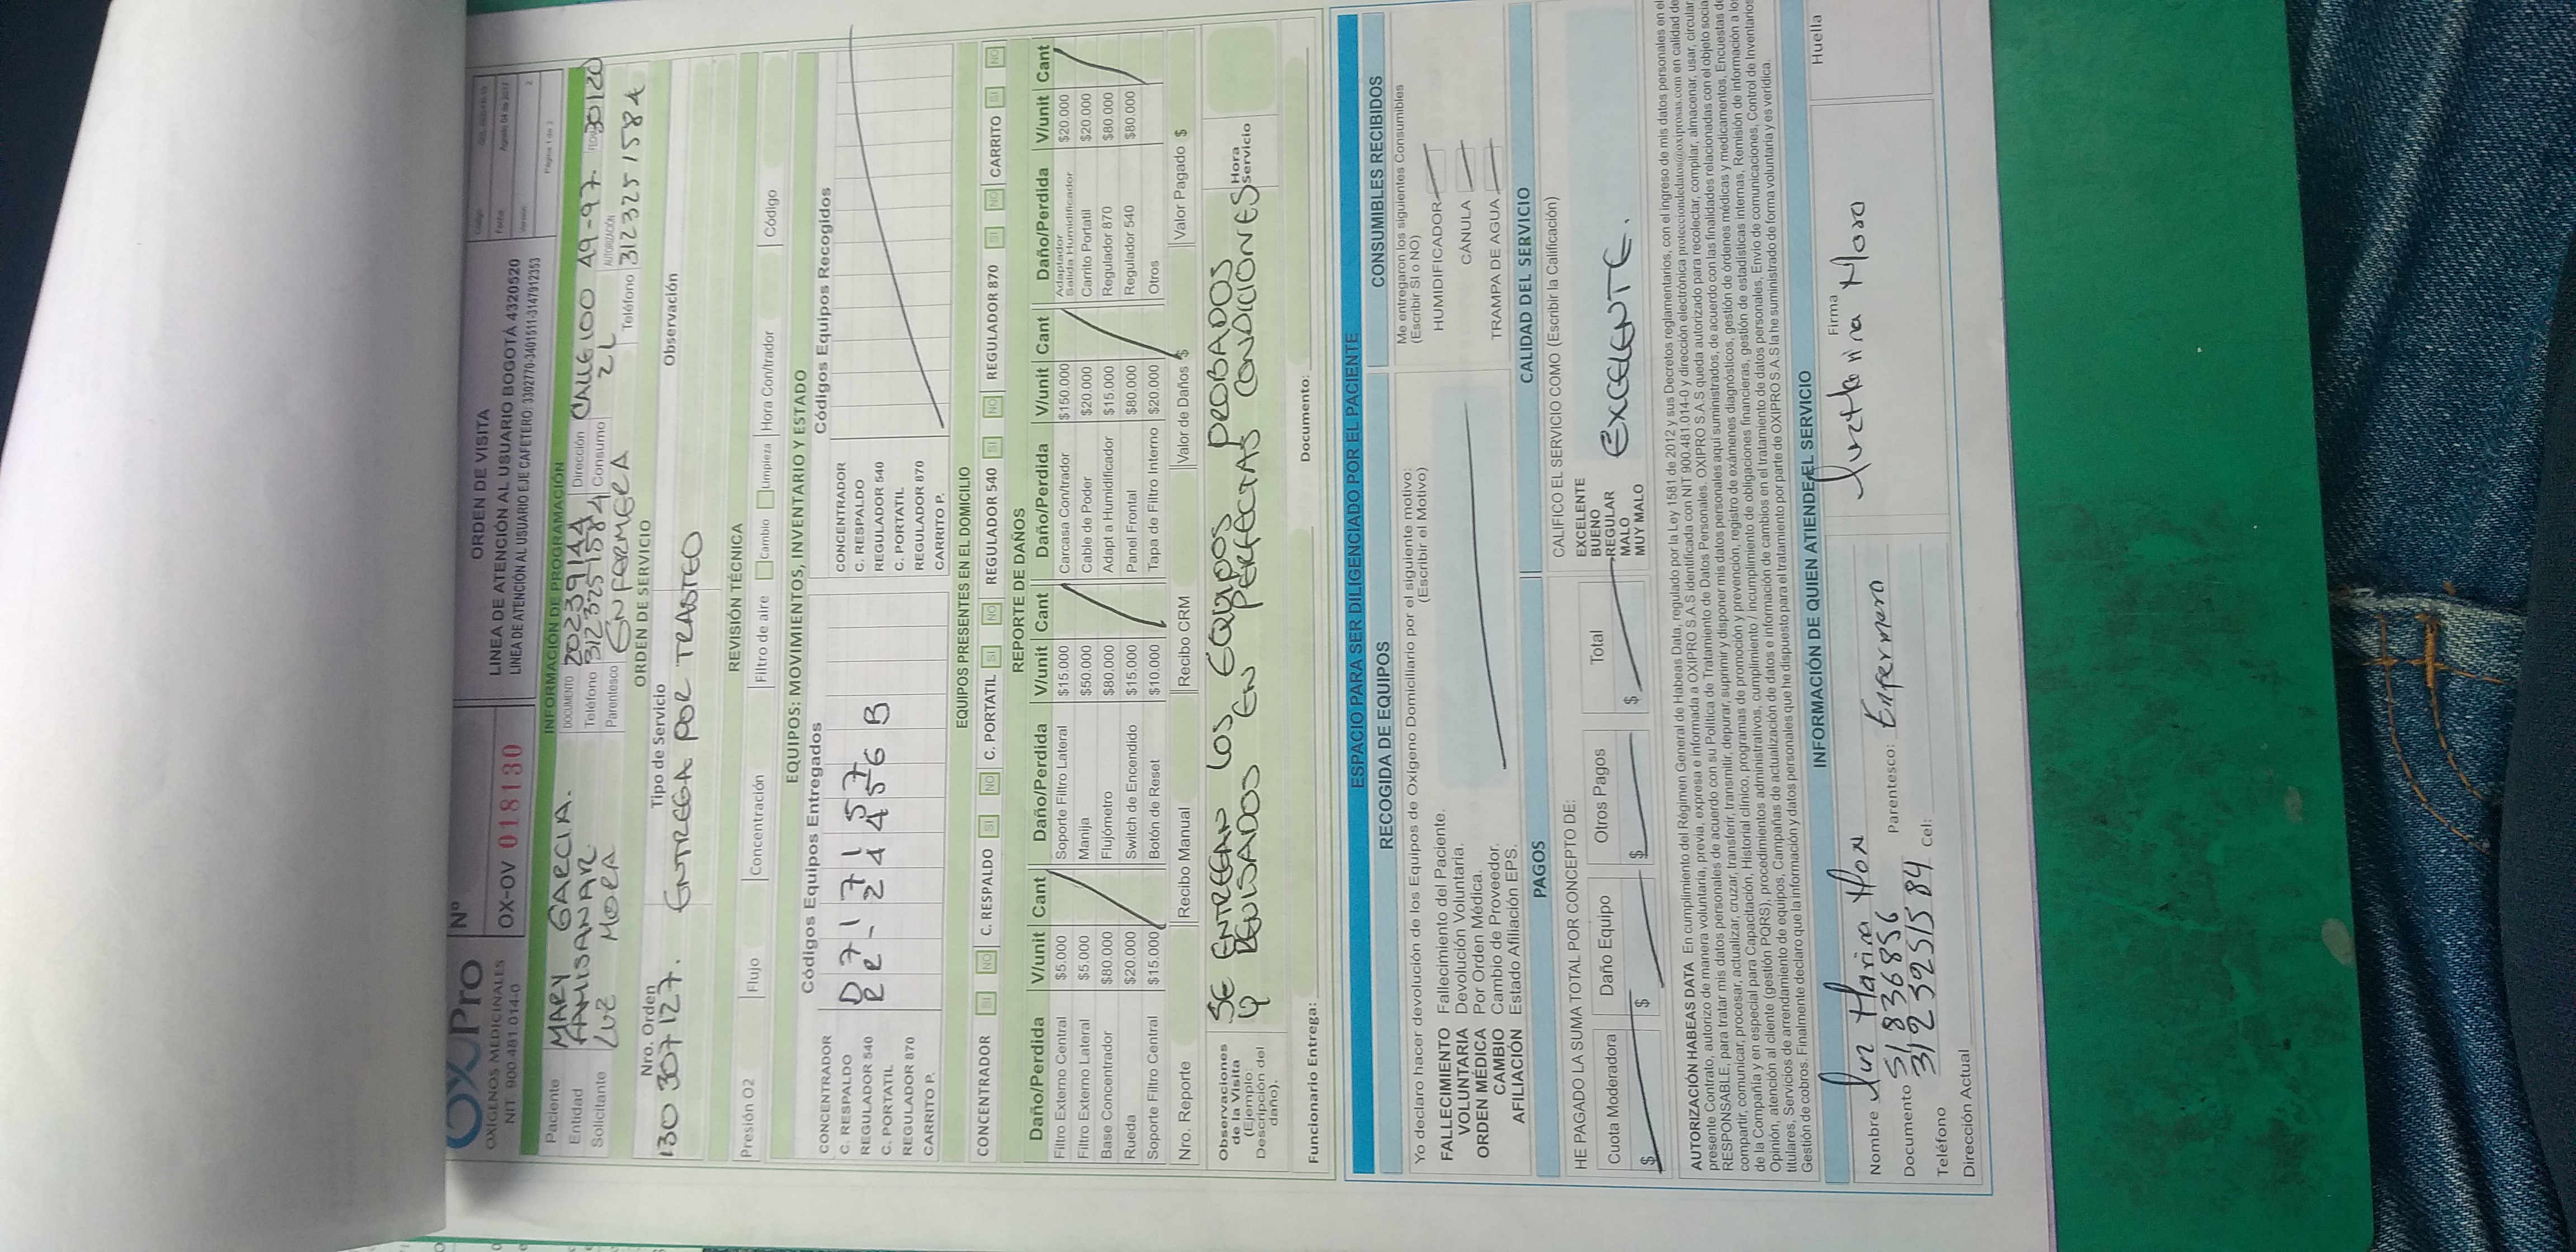 OxPro
OXÍGENOS MEDICINALES
NIT 900.481.014-0
Nº
OX-OV 0181130
ORDEN DE VISITA
LINEA DE ATENCIÓN AL USUARIO BOGOTÁ 4320520
LINEA DE ATENCIÓN AL USUARIO EJE CAFETERO: 3302770-3401511-3147912353
Código
Fecha Agosto 04 de 2017
Versión 2
Página 1 de 2
INFORMACIÓN DE PROGRAMACIÓN
Paciente MARY GARCIA. DOCUMENTO 20239144 Dirección CALLE 100 49-97. FECHA 30/20
Entidad FAMISANAR Teléfono 3123251584 Consumo 2L AUTORIZACIÓN
Solicitante LUZ MORA Parentesco ENFERMERA Teléfono 3123251584
ORDEN DE SERVICIO
Nro. Orden Tipo de Servicio Observación
130 307127. ENTREGA POR TRASTEO
REVISIÓN TÉCNICA
Presión O2 Flujo Concentración Filtro de aire Cambio Limpieza Hora Con/trador Código
EQUIPOS: MOVIMIENTOS, INVENTARIO Y ESTADO
Códigos Equipos Entregados Códigos Equipos Recogidos
CONCENTRADOR CONCENTRADOR
C. RESPALDO C. RESPALDO
REGULADOR 540 REGULADOR 540
C. PORTATIL C. PORTATIL
REGULADOR 870 REGULADOR 870
CARRITO P. CARRITO P.
EQUIPOS PRESENTES EN EL DOMICILIO
CONCENTRADOR SI NO C. RESPALDO SI NO C. PORTATIL SI NO REGULADOR 540 SI NO REGULADOR 870 SI NO CARRITO SI NO
REPORTE DE DAÑOS
Daño/Perdida V/unit Cant Daño/Perdida V/unit Cant Daño/Perdida V/unit Cant Daño/Perdida V/unit Cant
Filtro Externo Central $5.000 Soporte Filtro Lateral $15.000 Carcasa Con/trador $150.000 Adaptador Salida Humidificador $20.000
Filtro Externo Lateral $5.000 Manija $50.000 Cable de Poder $20.000 Carrito Portatil $20.000
Base Concentrador $80.000 Flujómetro $80.000 Adapt a Humidificador $15.000 Regulador 870 $80.000
Rueda $20.000 Switch de Encendido $15.000 Panel Frontal $80.000 Regulador 540 $80.000
Soporte Filtro Central $15.000 Botón de Reset $10.000 Tapa de Filtro Interno $20.000 Otros
Nro. Reporte Recibo Manual Recibo CRM Valor de Daños $ Valor Pagado $
Observaciones de la Visita (Ejemplo: Descripción del daño).
SE ENTREGAN LOS EQUIPOS PROBADOS
Y REVISADOS EN PERFECTAS CONDICIONES
Hora Servicio
Funcionario Entrega: Documento:
ESPACIO PARA SER DILIGENCIADO POR EL PACIENTE
RECOGIDA DE EQUIPOS CONSUMIBLES RECIBIDOS
Yo declaro hacer devolución de los Equipos de Oxígeno Domiciliario por el siguiente motivo:
(Escribir el Motivo)
FALLECIMIENTO Fallecimiento del Paciente.
VOLUNTARIA Devolución Voluntaria.
ORDEN MÉDICA Por Orden Médica.
CAMBIO Cambio de Proveedor.
AFILIACIÓN Estado Afiliación EPS.
Me entregaron los siguientes Consumibles
(Escribir SI o NO)
HUMIDIFICADOR
CÁNULA
TRAMPA DE AGUA
PAGOS CALIDAD DEL SERVICIO
HE PAGADO LA SUMA TOTAL POR CONCEPTO DE:
Cuota Moderadora Daño Equipo Otros Pagos Total
$ $ $ $
CALIFICO EL SERVICIO COMO (Escribir la Calificación)
EXCELENTE
BUENO
REGULAR
MALO
MUY MALO
EXCELENTE.
AUTORIZACIÓN HABEAS DATA En cumplimiento del Régimen General de Habeas Data, regulado por la Ley 1581 de 2012 y sus Decretos reglamentarios, con el ingreso de mis datos personales en el
presente Contrato, autorizo de manera voluntaria, previa, expresa e informada a OXIPRO S.A.S identificada con NIT 900.481.014-0 y dirección electrónica protecciondedatos@oxiprosas.com en calidad de
RESPONSABLE, para tratar mis datos personales de acuerdo con su Política de Tratamiento de Datos Personales. OXIPRO S.A.S queda autorizado para recolectar, compilar, almacenar, usar, circular,
compartir, comunicar, procesar, actualizar, cruzar, transferir, transmitir, depurar, suprimir y disponer mis datos personales aquí suministrados, de acuerdo con las finalidades relacionadas con el objeto social
de la Compañía y en especial para Capacitación, Historial clínico, programas de promoción y prevención, registro de exámenes diagnósticos, gestión de órdenes médicas y medicamentos, Encuestas de
Opinión, atención al cliente (gestión PQRS), procedimientos administrativos, cumplimiento / incumplimiento de obligaciones financieras, gestión de estadísticas internas, Remisión de información a los
titulares, Servicios de arrendamiento de equipos, Campañas de actualización de datos e información de cambios en el tratamiento de datos personales, Envío de comunicaciones, Control de Inventarios,
Gestión de cobros. Finalmente declaro que la información y datos personales que he dispuesto para el tratamiento por parte de OXIPRO S.A.S la he suministrado de forma voluntaria y es verídica.
INFORMACIÓN DE QUIEN ATIENDE EL SERVICIO
Nombre Luz Marina Mora
Documento 51836856 Parentesco: Enfermera
Teléfono 3123251584 Cel:
Dirección Actual
Firma Luz Marina Mora
Huella